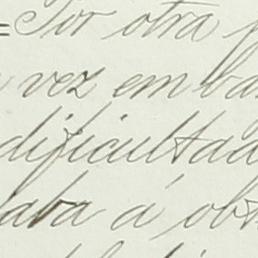 =Por otra
vez em ba
dificultad
aba á obt